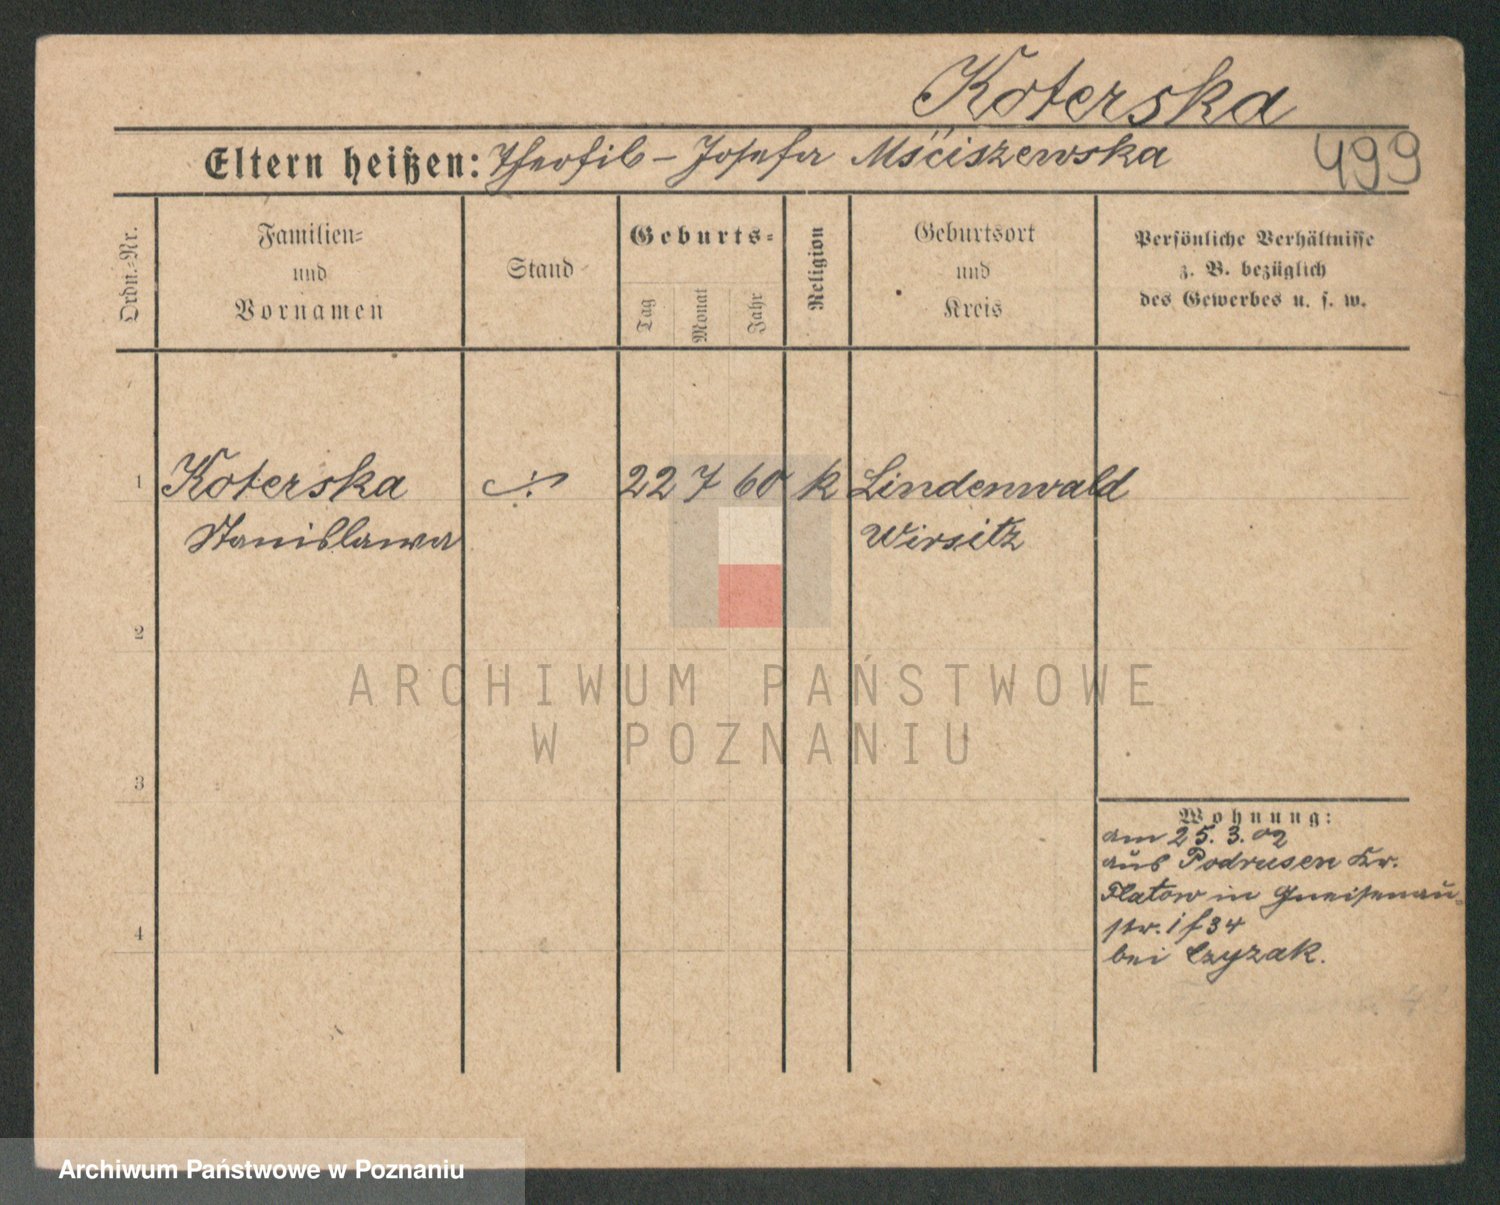 Koterska
Eltern heißen: Theofil – Josefa Mściszewska
499
Ordn.=Nr.
Familien=
und
Vornamen
Stand
Geburts=
Tag
Monat
Jahr
Religion
Geburtsort
und
Kreis
Persönliche Verhältnisse
z. B. bezüglich
des Gewerbes u. s. w.
1 Koterska ·/. 22 7 60 k Lindenwald
Stanislawa Wirsitz
2
ARCHIWUM PAŃSTWOWE
W POZNANIU
3
Wohnung:
am 25. 3. 02
aus Podrusen Kr.
Flatow in Gneisenau=
str. 1 f 34
4
bei Czyzak.
Archiwum Państwowe w Poznaniu